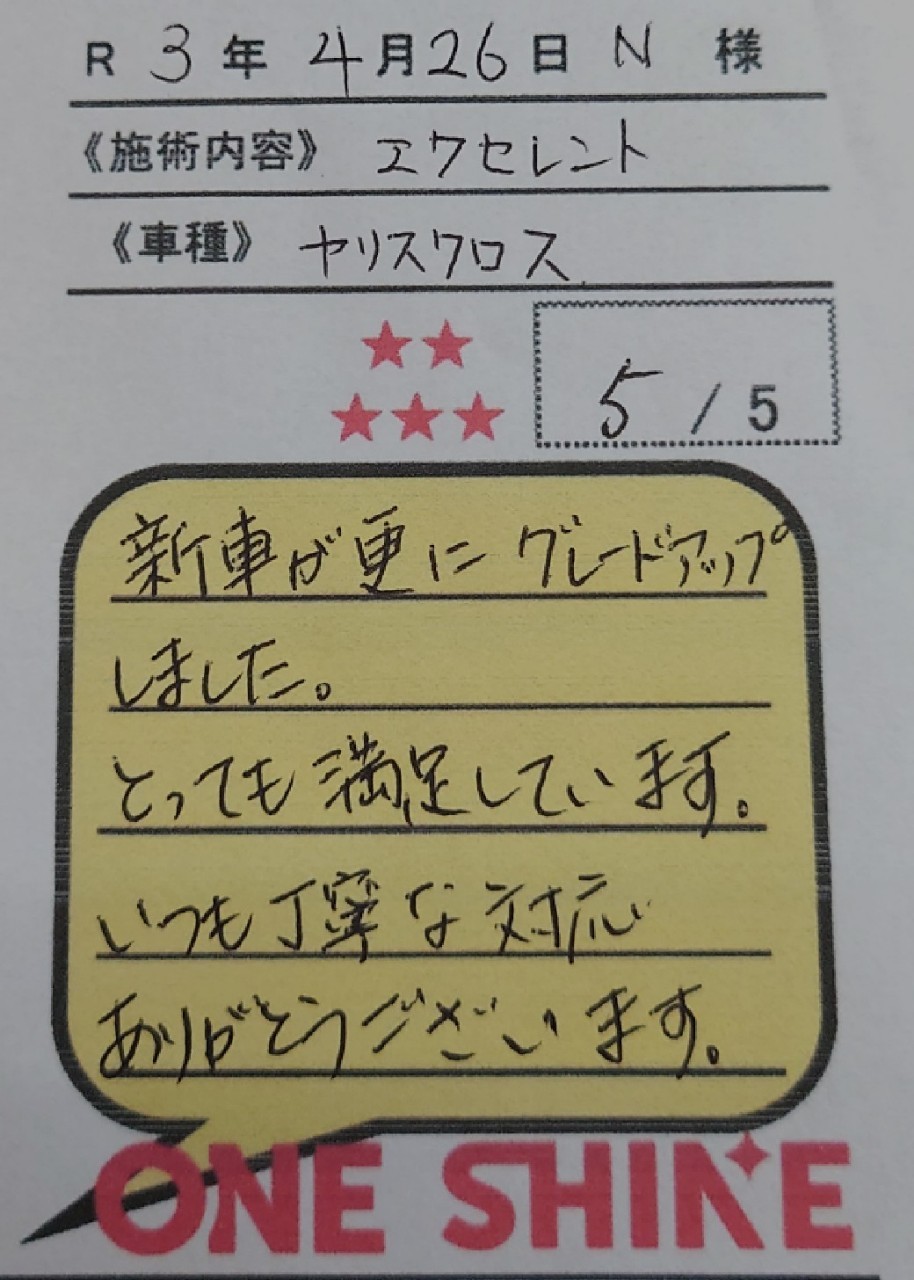 R 3年 4月26日 N 様
《施術内容》 エクセレント
《車種》 ヤリスクロス
5 / 5
新車が更に グレードアップ
しました。
とっても満足しています。
いつも丁寧な対応
ありがとうございます。
ONE SHINE